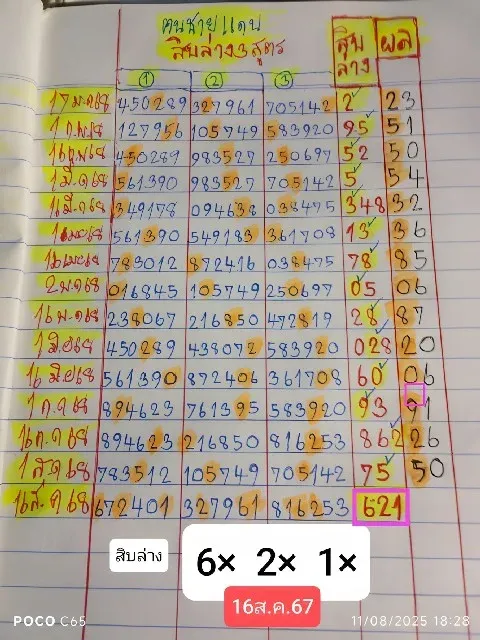 คนชายแดน
สิบล่าง3สูตร
สิบล่าง ผล
① ② ③
17 ม.ค68 450289 327961 705142 2 23
1 ก.พ68 127956 105749 583920 95 51
16 ก.พ68 450289 983527 250697 52 50
1 มี.ค68 561390 983527 705142 5 54
16 มี.ค68 349178 094638 038475 348 32
1 เมย68 561390 549183 361708 13 36
16 เมย68 783012 872416 038475 78 85
2 พ.ค68 016845 105749 250697 05 06
16 พ.ค68 238067 216850 472819 28 87
1 มิย68 450289 438072 583920 028 20
16 มิย68 561390 872406 361708 60 06
1 ก.ค68 894623 761395 583920 93 91
16 ก.ค68 894623 216850 816253 862 26
1 ส.ค68 783512 105749 705142 75 50
16 ส.ค68 672401 327961 816253 621
สิบล่าง 6× 2× 1×
16ส.ค.67
POCO C65
11/08/2025 18:28